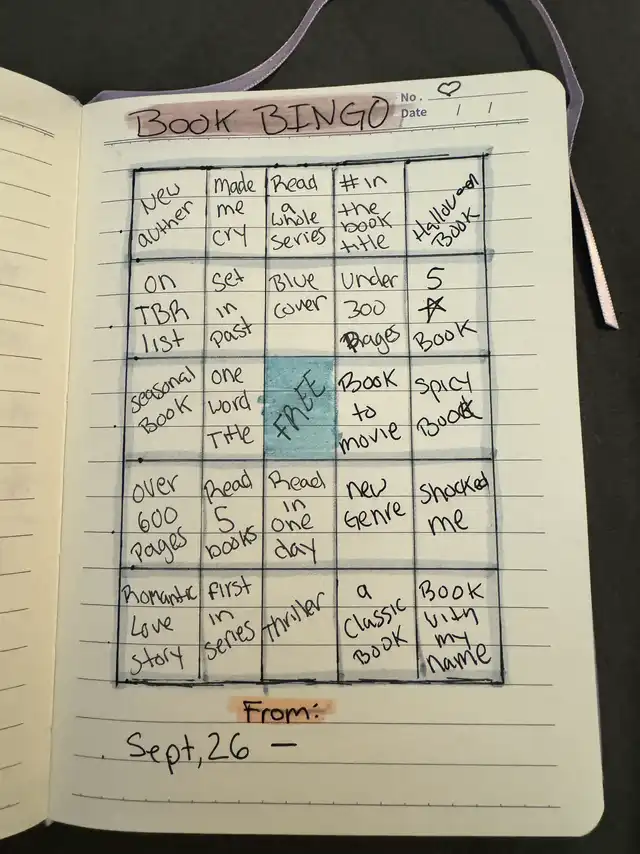 BOOK BINGO
No. ♡
Date / /
New
auther
made
me
cry
Read
a
whole
series
# in
the
book
title
Halloween
BOOK
on
TBR
list
Set
in
past
Blue
cover
Under
300
Pages
5
☆
BOOK
Seasonal
BOOK
one
word
Title
FREE
Book
to
movie
Spicy
Book
over
600
pages
Read
5
books
Read
in
one
day
New
Genre
Shocked
me
Romantic
Love
Story
first
in
series
Thriller
a
Classic
BOOK
BOOK
with
my
name
From:
Sept, 26 —